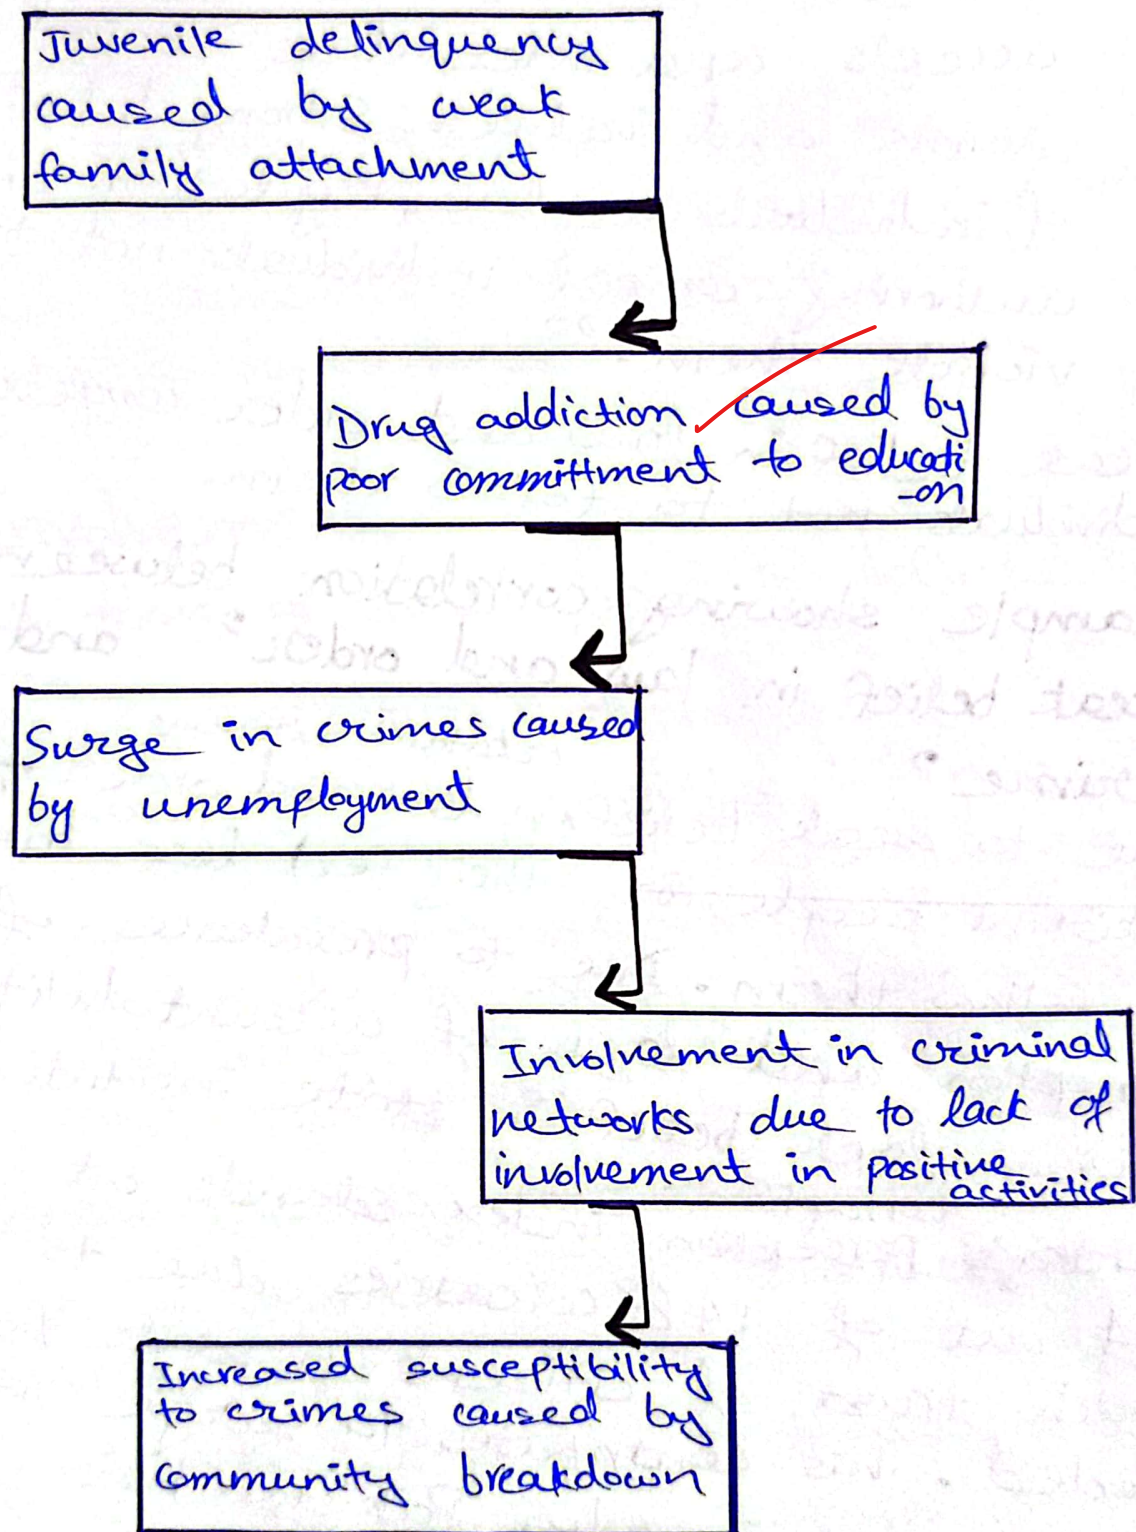 Juvenile delinquency
caused by weak
family attachment
Drug addiction caused by
poor committment to educati
-on
Surge in crimes caused
by unemployment
Involvement in criminal
networks due to lack of
involvement in positive
activities
Increased susceptibility
to crimes caused by
community breakdown